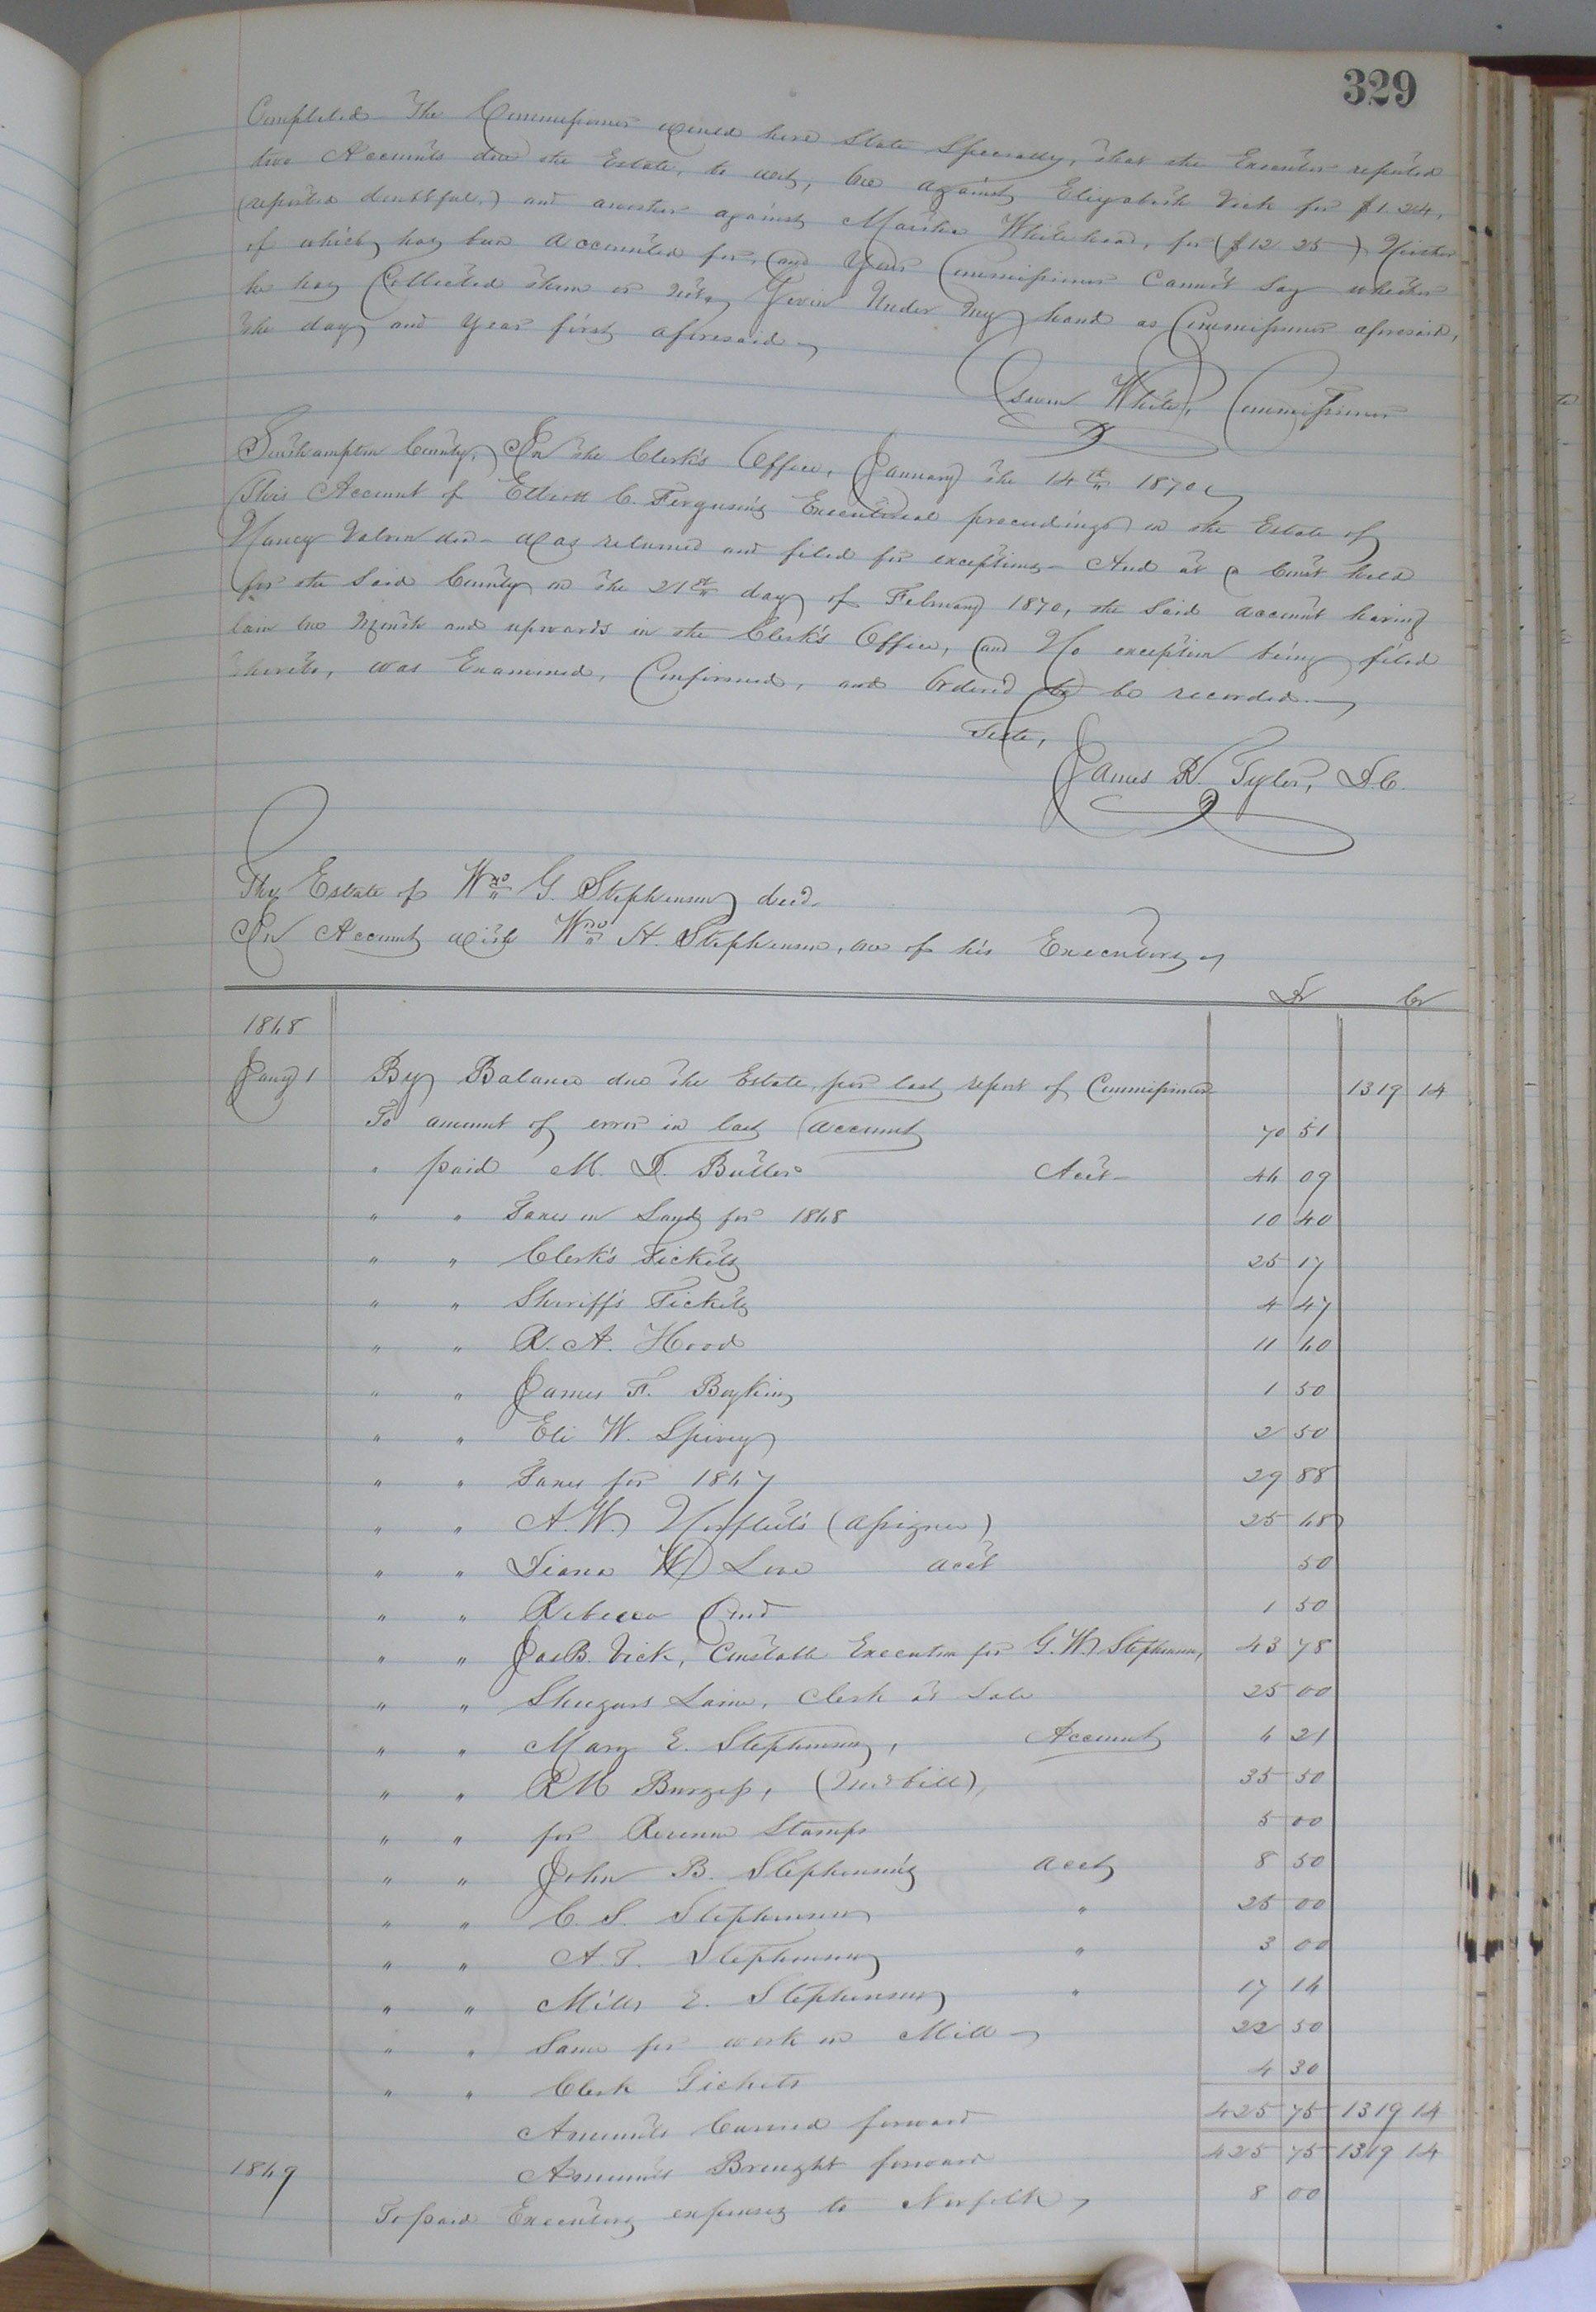 329
Completed The Commissioner would here State Specially, that the Executor reported
two Accounts due the Estate, to wit, One against Elizabeth Vick for $1.24,
(reported doubtful,) and another against Martha Whitehead, for ($12.25) Neither
of which has been accounted for, and Your Commissioner cannot say whether
he has Collected them or not. Given Under my hand as Commissioner aforesaid,
the day and Year first aforesaid
White, Commissioner
Southampton County, In the Clerk's Office, January the 14th 1870
This Account of Elliott C. Ferguson's Executorial proceedings on the Estate of
Nancy dec'd was returned and filed for exceptions - And at a Court held
for the Said County on the 21st day of February 1870, the Said account having
lain one Month and upwards in the Clerk's Office, and No exception being filed
thereto, was Examined, Confirmed, and Ordered to be recorded.
Teste,
James R. Tyler, D.C.
The Estate of Wm G. Stephenson dec'd.
In Account with Wm H. Stephenson, one of his Executors
Dr Cr
1868
Jany 1 By Balance due the Estate per last report of Commissioner 1319 14
To amount of error in last account 70 51
" paid M. D. Butler Acct 46 09
" " Taxes on Land for 1868 10 40
" " Clerk's Tickets 25 17
" " Sheriff's Tickets 4 47
" " R. A. Hood 11 60
" " James F. Boykin 1 50
" " Eli W. Spivey 2 50
" " Taxes for 1867 29 88
" " A. W. Norfleet's (assignee) 25 68
" " W Love acct 50
" " Rebecca 1 50
" " Jas B. Vick, Constable Execution for G. W. Stephenson, 43 78
" " Laine, Clerk at Sale 25 00
" " Mary E. Stephenson, Account 6 21
" " R M Burgess, (Med bill), 35 50
" " for Revenue Stamps 5 00
" " John B. Stephenson's acct 8 50
" " C. S. Stephenson " 25 00
" " A. T. Stephenson " 3 00
" " Mills E. Stephenson " 17 14
" " Same for work on Mill 22 50
" " Clerk Tickets 4 30
Amounts Carried forward 425 75 1319 14
1869 Amounts Brought forward 425 75 1319 14
To paid Executors expenses to Norfolk 8 00